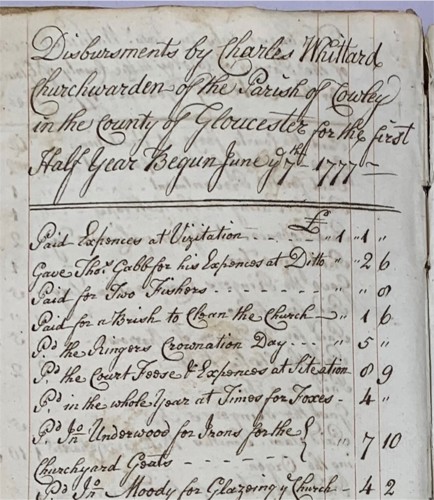 Disbursments by Charles Whittard
Churchwarden of the Parish of Cowley
in the County of Gloucester for the first
Half Year Begun June ye 7th 1777
£
Paid Expences at Vizitation - - - - " 1 " 1 "
Gave Thos Gabb for his Expences at Ditto " " 2 6
Paid for Two Fishers - - - - - - - " " 8
Paid for a Brish to Clean the Church - " 1 6
Pd the Ringers Crownation Day - - - " 5 "
Pd the Court Feese & Expences at Siteation 8 9
Pd in the whole Year at Times for Foxes - 4 "
Pd Jno Underwood for Irons for the
Churchyard Geats - - - - - - 7 10
Pd Jno Moody for Glazeing ye Church - 4 2